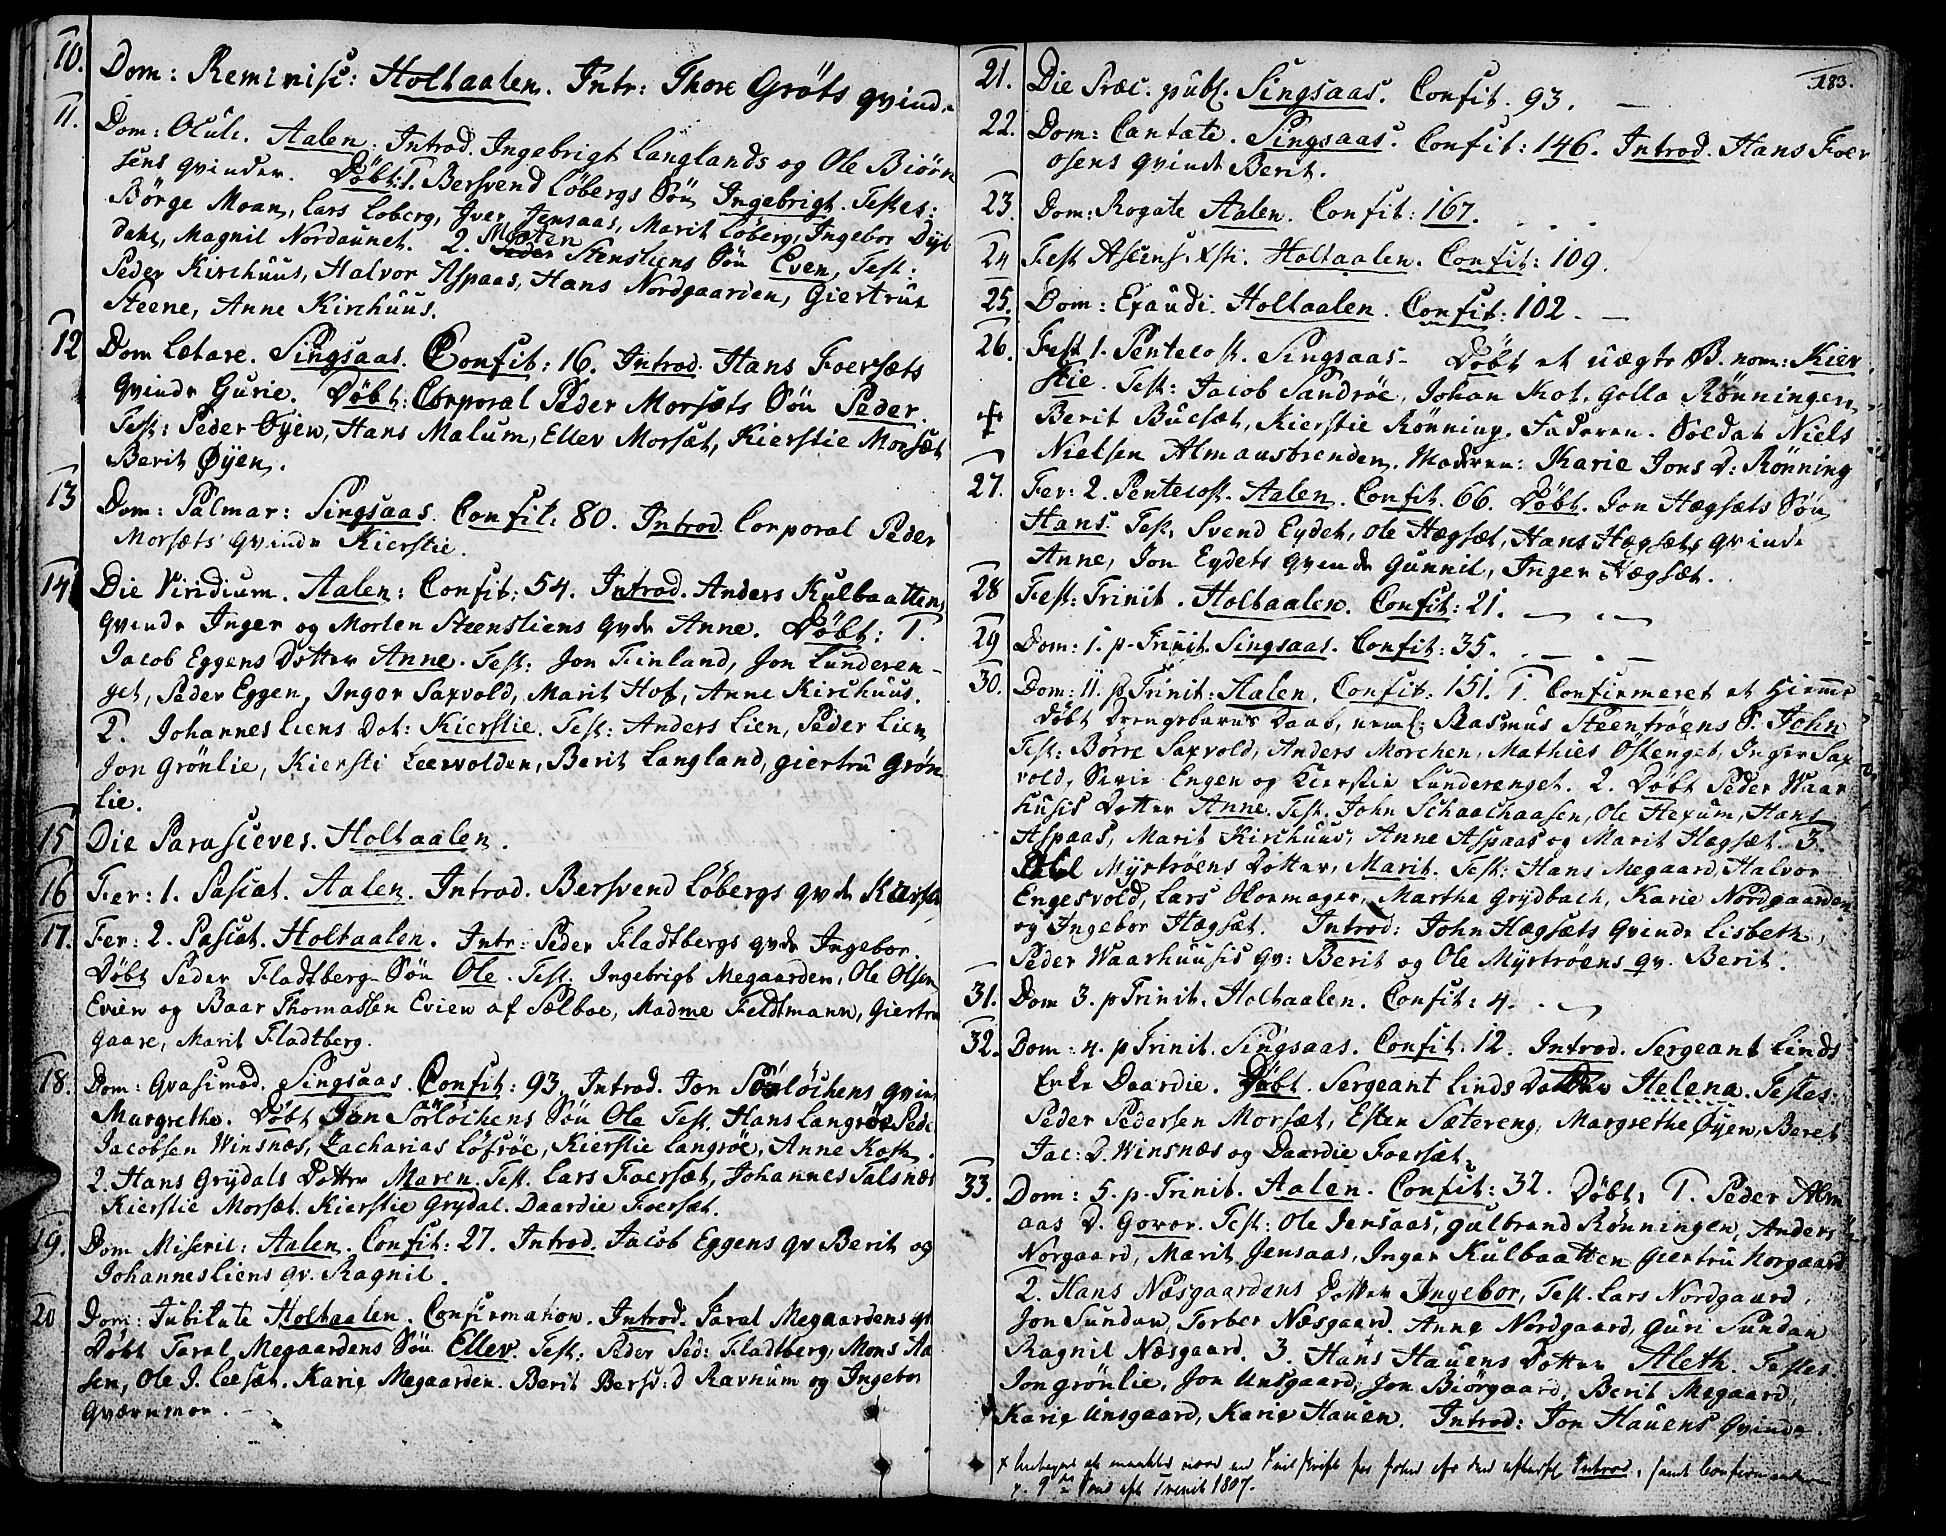 10. Dom: Reminisc: Holtaalen. Intr: Thore Gröts qvinde
11. Dom: Oculi. Aalen. Introd. Ingebrigt Langlands og Ole Biörn
sens qvinder. Döbt: 1. Bersvend Löbergs Sön Ingebrigt. Testes:
Börge Moan, Lars Loberg, Iver Jensaas, Marit Löberg, Ingebor Dyb
dahl, Magnil Nordaunet. 2. Morten Stensliens Sön Even, Test:
Peder Kirchuus, Halvor Aspaas, Hans Nordgaarden, Giertrue
Steene, Anne Kirchuus.
12 Dom Lætare. Singsaas. Confit: 16. Introd. Hans Foersæts
qvinde Gurie. Döbt: Corporal Peder Morsæts Sön Peder.
Test: Peder Øyen, Hans Malum, Ellev Morsæt, Kierstie Morsæt
Berit Øyen.
13 Dom: Palmar: Singsaas. Confit: 80. Introd. Corporal Peder
Morsæts qvinde Kierstie.
14 Die Viridium. Aalen: Confit: 54. Introd. Anders Kulbaattens
qvinde Inger og Morten Steensliens qvde Anne. Döbt: 1.
Jacob Eggens Dotter Anne. Test: Jon Finland, Jon Lunderen-
get, Peder Eggen, Inger Saxvold, Marit Hof, Anne Kirchuus.
2. Johannes Liens Dot: Kierstie. Test: Anders Lien, Peder Lien
Jon Grönlie, Kiersti Leervolden, Berit Langland, giertru Grön
lie.
15 Die Parasceves. Holtaalen.
16 Fer: 1. Pascat. Aalen. Introd. Bersvend Löbergs qvde
17. Fer: 2. Pascat. Holtaalen. Intr: Peder Fladtbergs qvde Ingebor.
Döbt Peder Fladtberg Sön Ole. Test: Ingebrigt Megaarden, Ole Olsen
Evien og Baar Thomassen Evien af Sælboe, Madme Feldtmann, Giertru
Gaare, Marit Fladtberg.
18. Dom: Qvasimod. Singsaas. Confit: 93. Introd. Jon Sörlöchens qvin
Margrethe. Döbt Jon Sörlöchens Sön Ole Test. Hans Langröe Ped
Jacobsen Winsnæs, Zacharias Löfröe, Kierstie Langröe, Anne Kosk.
2. Hans Grydals Dotter Maren. Test. Lars Foersæt, Johannes Talsnæs
Kierstie Morsæt. Kierstie Grydal. Daardie Foersæt.
19. Dom Miseric: Aalen. Confit: 27. Introd. Jacob Eggens qv Berit og
Johannes Liens qv. Ragnil.
20 Dom: Jubilate Holtaalen. Confirmation. Introd. Taral Megaardens qv
Döbt Taral Megaardens Sön Ellev. Test: Peder Ped: Fladtberg, Mons Aa
sen, Ole J. Leesæt. Karie Megaarden. Berit Bersv:d Ravnum og Ingebor
Qværnmoe.
183.
21. Die Præc. publ. Singsaas. Confit. 93.
22. Dom: Cantate. Singsaas. Confit: 146. Introd. Hans Foer
osens qvinde Berit.
23. Dom: Rogate Aalen. Confit: 167.
24 Fest Ascens. Xsti. Holtaalen. Confit: 109.
25. Dom: Exaudi. Holtaalen. Confit: 102.
26. Fest 1. Pentecost. Singsaas. Döbt et uægte B. nom: Kier
stie. Test: Jacob Sandröe, Johan Kol. Golla Rönningen
Berit Buesæt, Kierstie Rönning. Faderen. Soldat Niels
Nielsen Almaasbrenden. Moderen: Karie Jons D: Rönning
27. Fer: 2. Pentecost. Aalen. Confit. 66. Döbt. Jon Hægsæts Sön
Hans. Test. Svend Eydet, Ole Hægsæt, Hans Hægsæts qvinde
Anne, Jon Eydets qvinde Gunnil, Inger Hægsæt.
28 Fest: Trinit. Holtaalen. Confit: 21.
29 Dom: 1. p. Trinit. Singsaas. Confit: 35.
30. Dom: 11. p Trinit: Aalen. Confit: 151. 1. Confirmeret et hieme
döbt Drengebarns Daab, neml: Rasmus Steentröens S. John
Test: Börre Saxvold, Anders Morchen, Mathies Östenget, Inger Sax
vold, Engen og Kierstie Lunderenget. 2. Döbt Peder Waar
husis Dotter Anne. Test. John Schaachaasen, Ole Hexum, Hans
Aspaas, Marit Kirchuus, Anne Aspaas og Marit Hægsæt. 3.
Ole Myrtröens Dotter, Marit. Test: Hans Megaard, Halvor
Engesvold, Lars Olormager, Martha Grydbach, Karie Nordgaarden
og Ingebor Hægsæt. Introd: John Hægsæts qvinde Lisbeth,
Peder Waarhuusis qv: Berit og Ole Myrtröens qv. Berit.
31. Dom 3. p Trinit. Holtaalen. Confit: 4.
32. Dom: 4. p Trinit. Singsaas. Confit. 12. Introd. Sergeant Linds
Enke Daardie. Döbt. Sergeant Linds Dotter Helena. Testes:
Peder Pedersen Morsæt, Esten Sætereng, Margrethe Øyen, Beret
Jac: D. Winsnæs og Daardie Foersæt.
33. Dom: 5. p. Trinit. Aalen. Confit: 32. Döbt: 1. Peder Alm
aas D. Gover. Test: Ole Jensaas, gulbrand Rönningen, Anders
Norgaard, Marit Jensaas, Inger Kulbaatten giertru Norgaard
2. Hans Næsgaardens Dotter Ingebor, Test. Lars Nordgaard,
Jon Sundan, Torber Næsgaard. Anne Nordgaard, Guri Sundan
Ragnil Næsgaard. 3. Hans Hauens Dotter Aleth. Testes:
Jon grönlie, Jon Unsgaard, Jon Biörgaard, Berit Megaard,
Karie Unsgaard, Karie Hauen. Introd: Jon Hauens Qvinde.
Introd.
Trinit 1807.